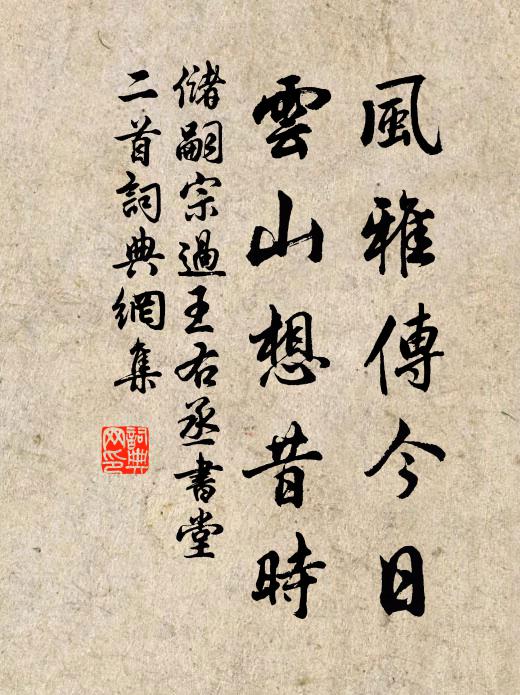 風雅傳今日
雲山想昔時
儲嗣宗過王右丞書堂
二首詞典網集
詞典
网印